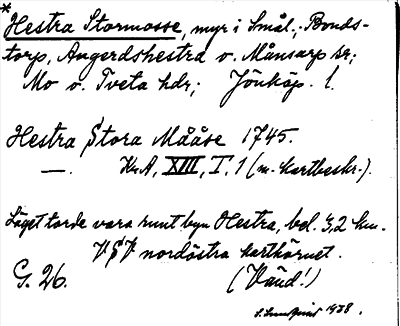 * Hestra Stormosse, myr i Smål.; Bonds-
torp, Angerdshestra o. Månsarp sr;
Mo o. Tveta hdr; Jönköp. l.
Hestra Stora Mååse 1745.
—. Kr.A, XIII, I, 1 (m. kartbeskr.).
Läget torde vara runt byn Hestra, bel. 3,2 km.
VSV nordöstra karthörnet.
G. 26. (Vänd!)
1938.